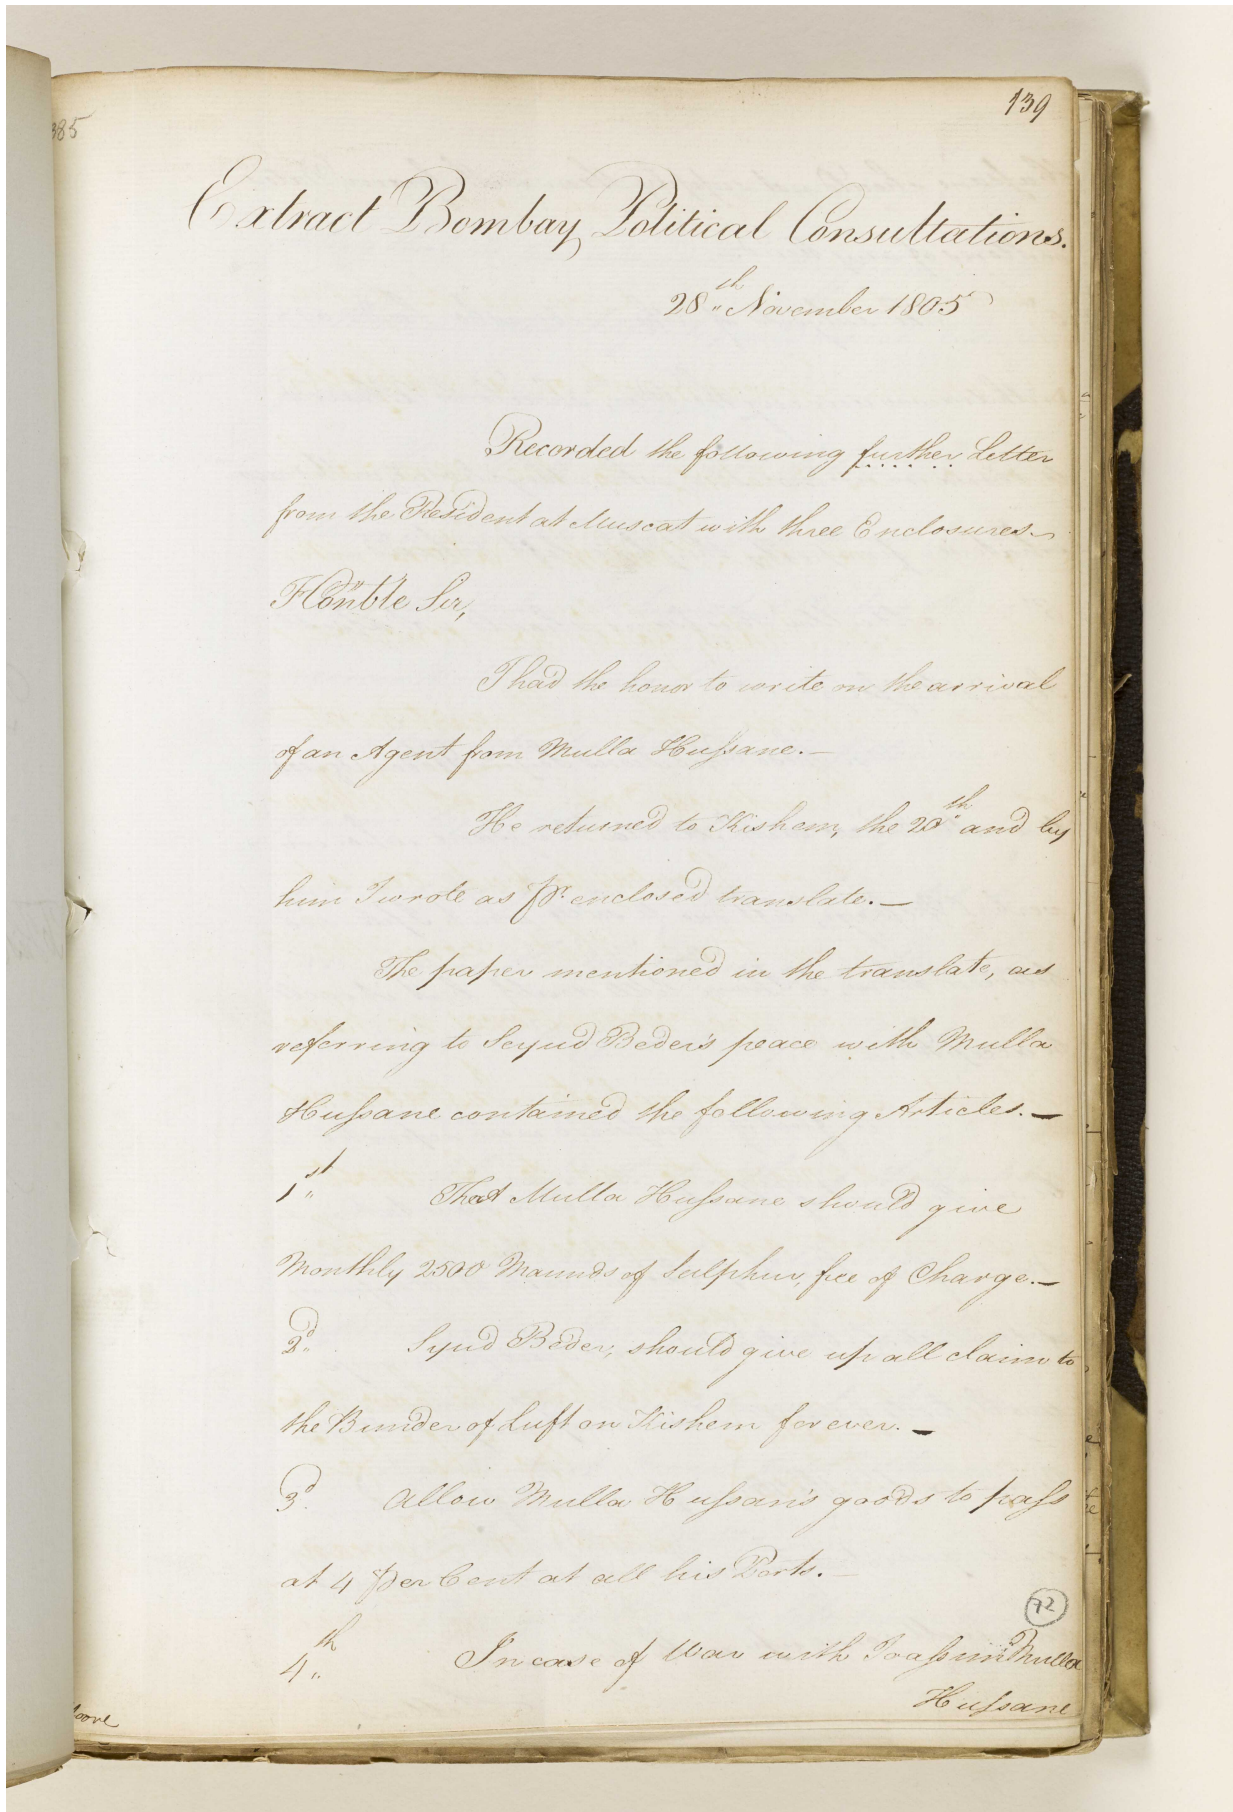 139
385
Extract Bombay Political Consultations.
28th November 1805
Recorded the following further Letter
from the Resident at Muscat with three Enclosures.
Honble Sir,
I had the honor to write on the arrival
of an Agent from Mulla Hussane.—
He returned to Kishem, the 20th and by
him I wrote as pr. enclosed translate.—
The paper mentioned in the translate, as
referring to Seyud Beder's peace with Mulla
Hussane contained the following Articles.—
1st That Mulla Hussane should give
Monthly 2500 Maunds of Sulphur, free of Charge.—
2d. Syud Beder, should give up all claim to
the Bunder of Luft on Kishem forever.—
3d. Allow Mulla Hussan's goods to pass
at 4 per Cent at all his Ports.—
72
4th In case of War with Joassim Mulla
Hussane